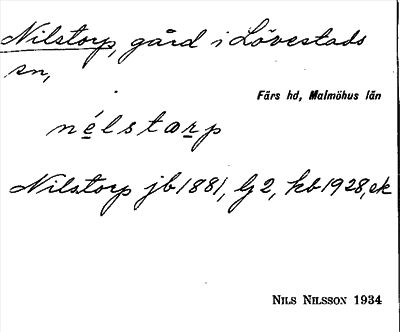 Nilstorp, gård i Lövestads
sn,
Färs hd, Malmöhus län
nélstorp
Nilstorp jb 1881, G2, kb 1928, ek
NILS NILSSON 1934